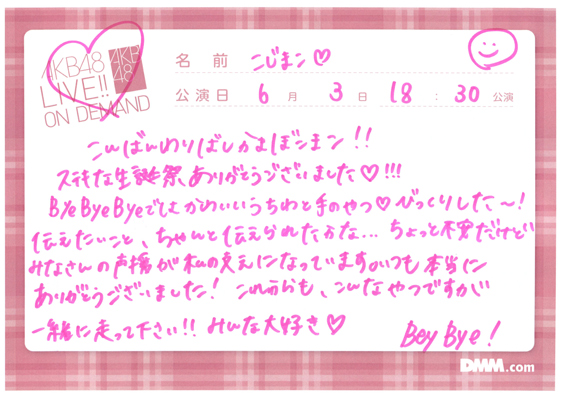 AKB48
LIVE!!
ON DEMAND
AKB
48
名前 こじまこ♡
公演日 6月 3日 18:30 公演
こんばんわりばしかまぼこまこ!!
ステキな生誕祭、ありがとうございました♡!!!
ByeByeByeではかわいいうちわと手のやつ♡びっくりした〜!
伝えたいこと、ちゃんと伝えられたかな... ちょっと不安だけど
みなさんの声援が私の支えになっています。いつも本当に
ありがとうございました! これからも、こんなやつですが
一緒に走って下さい!! みんな大好き♡
Bey Bye!
DMM.com